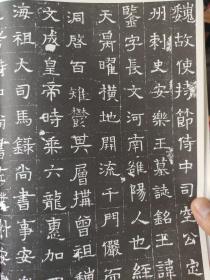 魏故使持節侍中司空公定
州刺史安樂王墓誌銘王諱
鑒字長文河南雒陽人也經
天曜橫地開流千門儼而
洞啓百雉鬱其層搆曾祖魏
文成皇帝時乘六龍惠加
海祖大司馬錄尚書事安